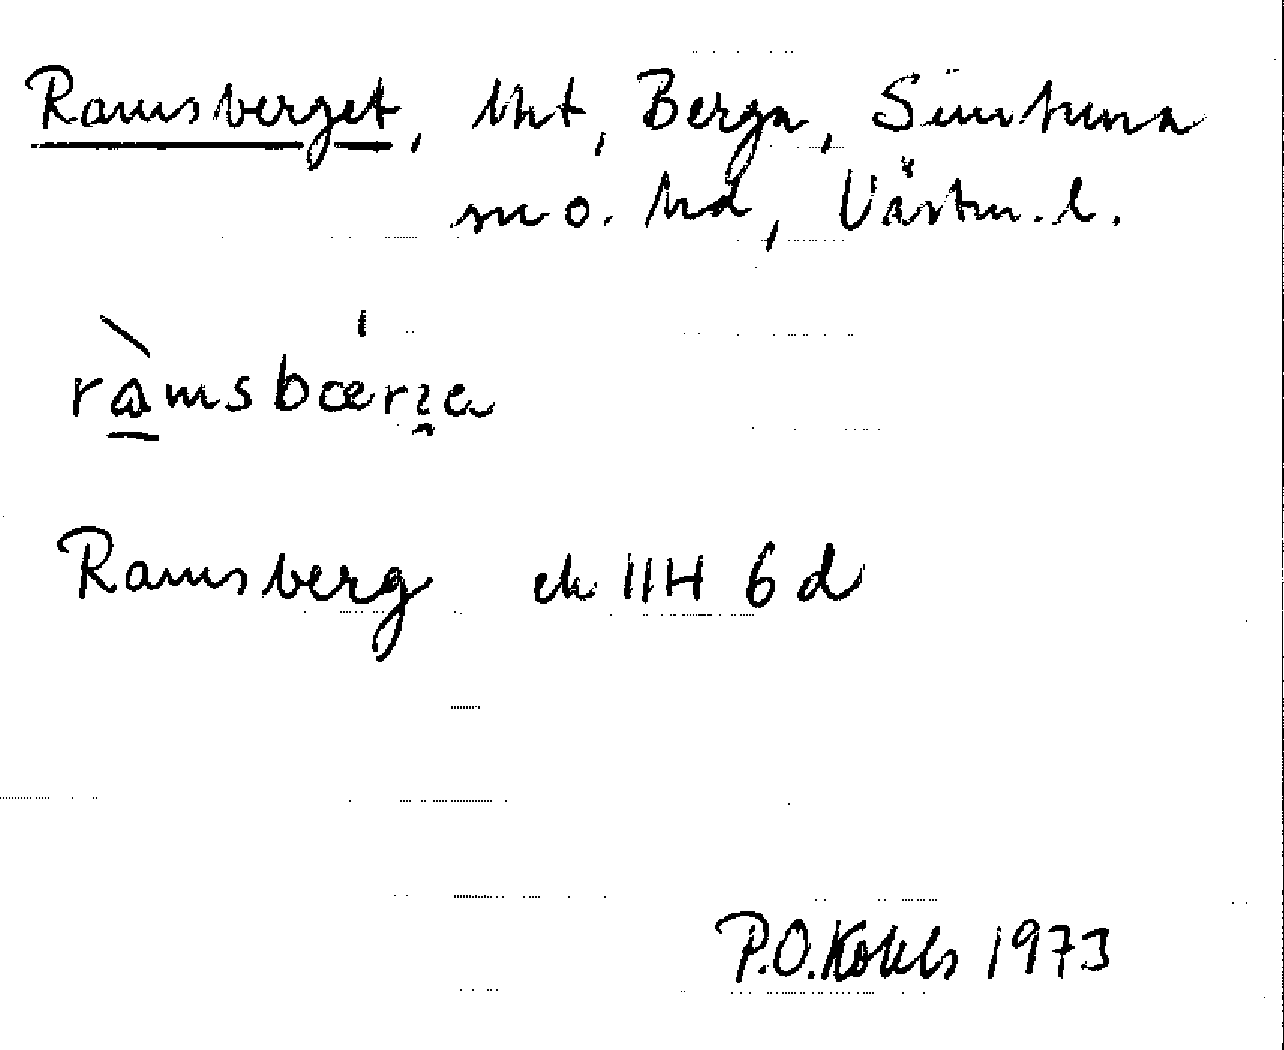 Ramsberget, tht, Berga, Simtuna
sn o. hd, Västm. l.
ràmsbærʒa
Ramsberg ek 11H 6d
P.O.Kohls 1973